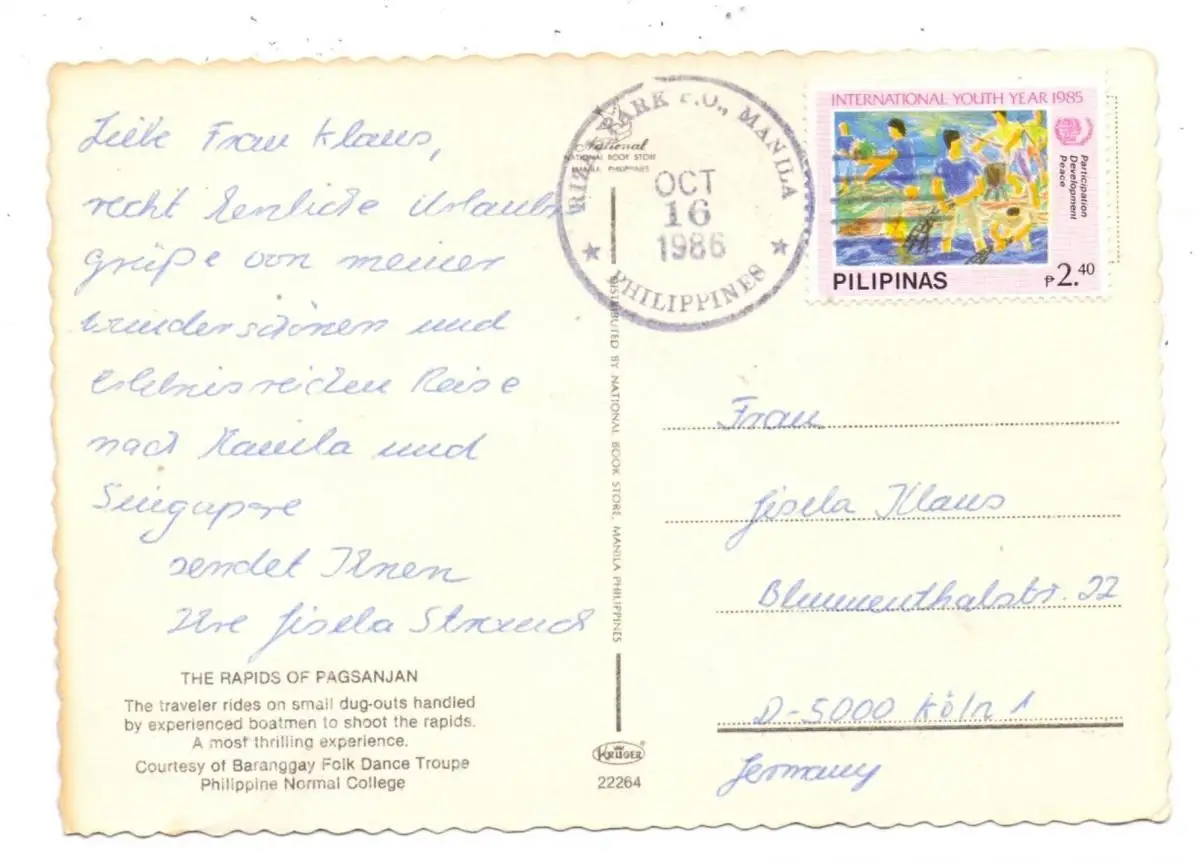 Liebe Frau Klaus,
recht herzliche Urlaubs
grüße von meiner
wunderschönen und
erlebnisreichen Reise
nach Manila und
Singapore
sendet Ihnen
Ihre Gisela
THE RAPIDS OF PAGSANJAN
The traveler rides on small dug-outs handled
by experienced boatmen to shoot the rapids.
A most thrilling experience.
Courtesy of Baranggay Folk Dance Troupe
Philippine Normal College
National
NATIONAL BOOK STORE
MANILA PHILIPPINES
DISTRIBUTED BY NATIONAL BOOK STORE, MANILA PHILIPPINES
KRÜGER
22264
PARK P.O., MANILA
OCT
16
1986
PHILIPPINES
INTERNATIONAL YOUTH YEAR 1985
Participation
Development
Peace
PILIPINAS
₱2.40
Frau
Gisela Klaus
Blumenthalstr. 22
D-5000 Köln 1
Germany